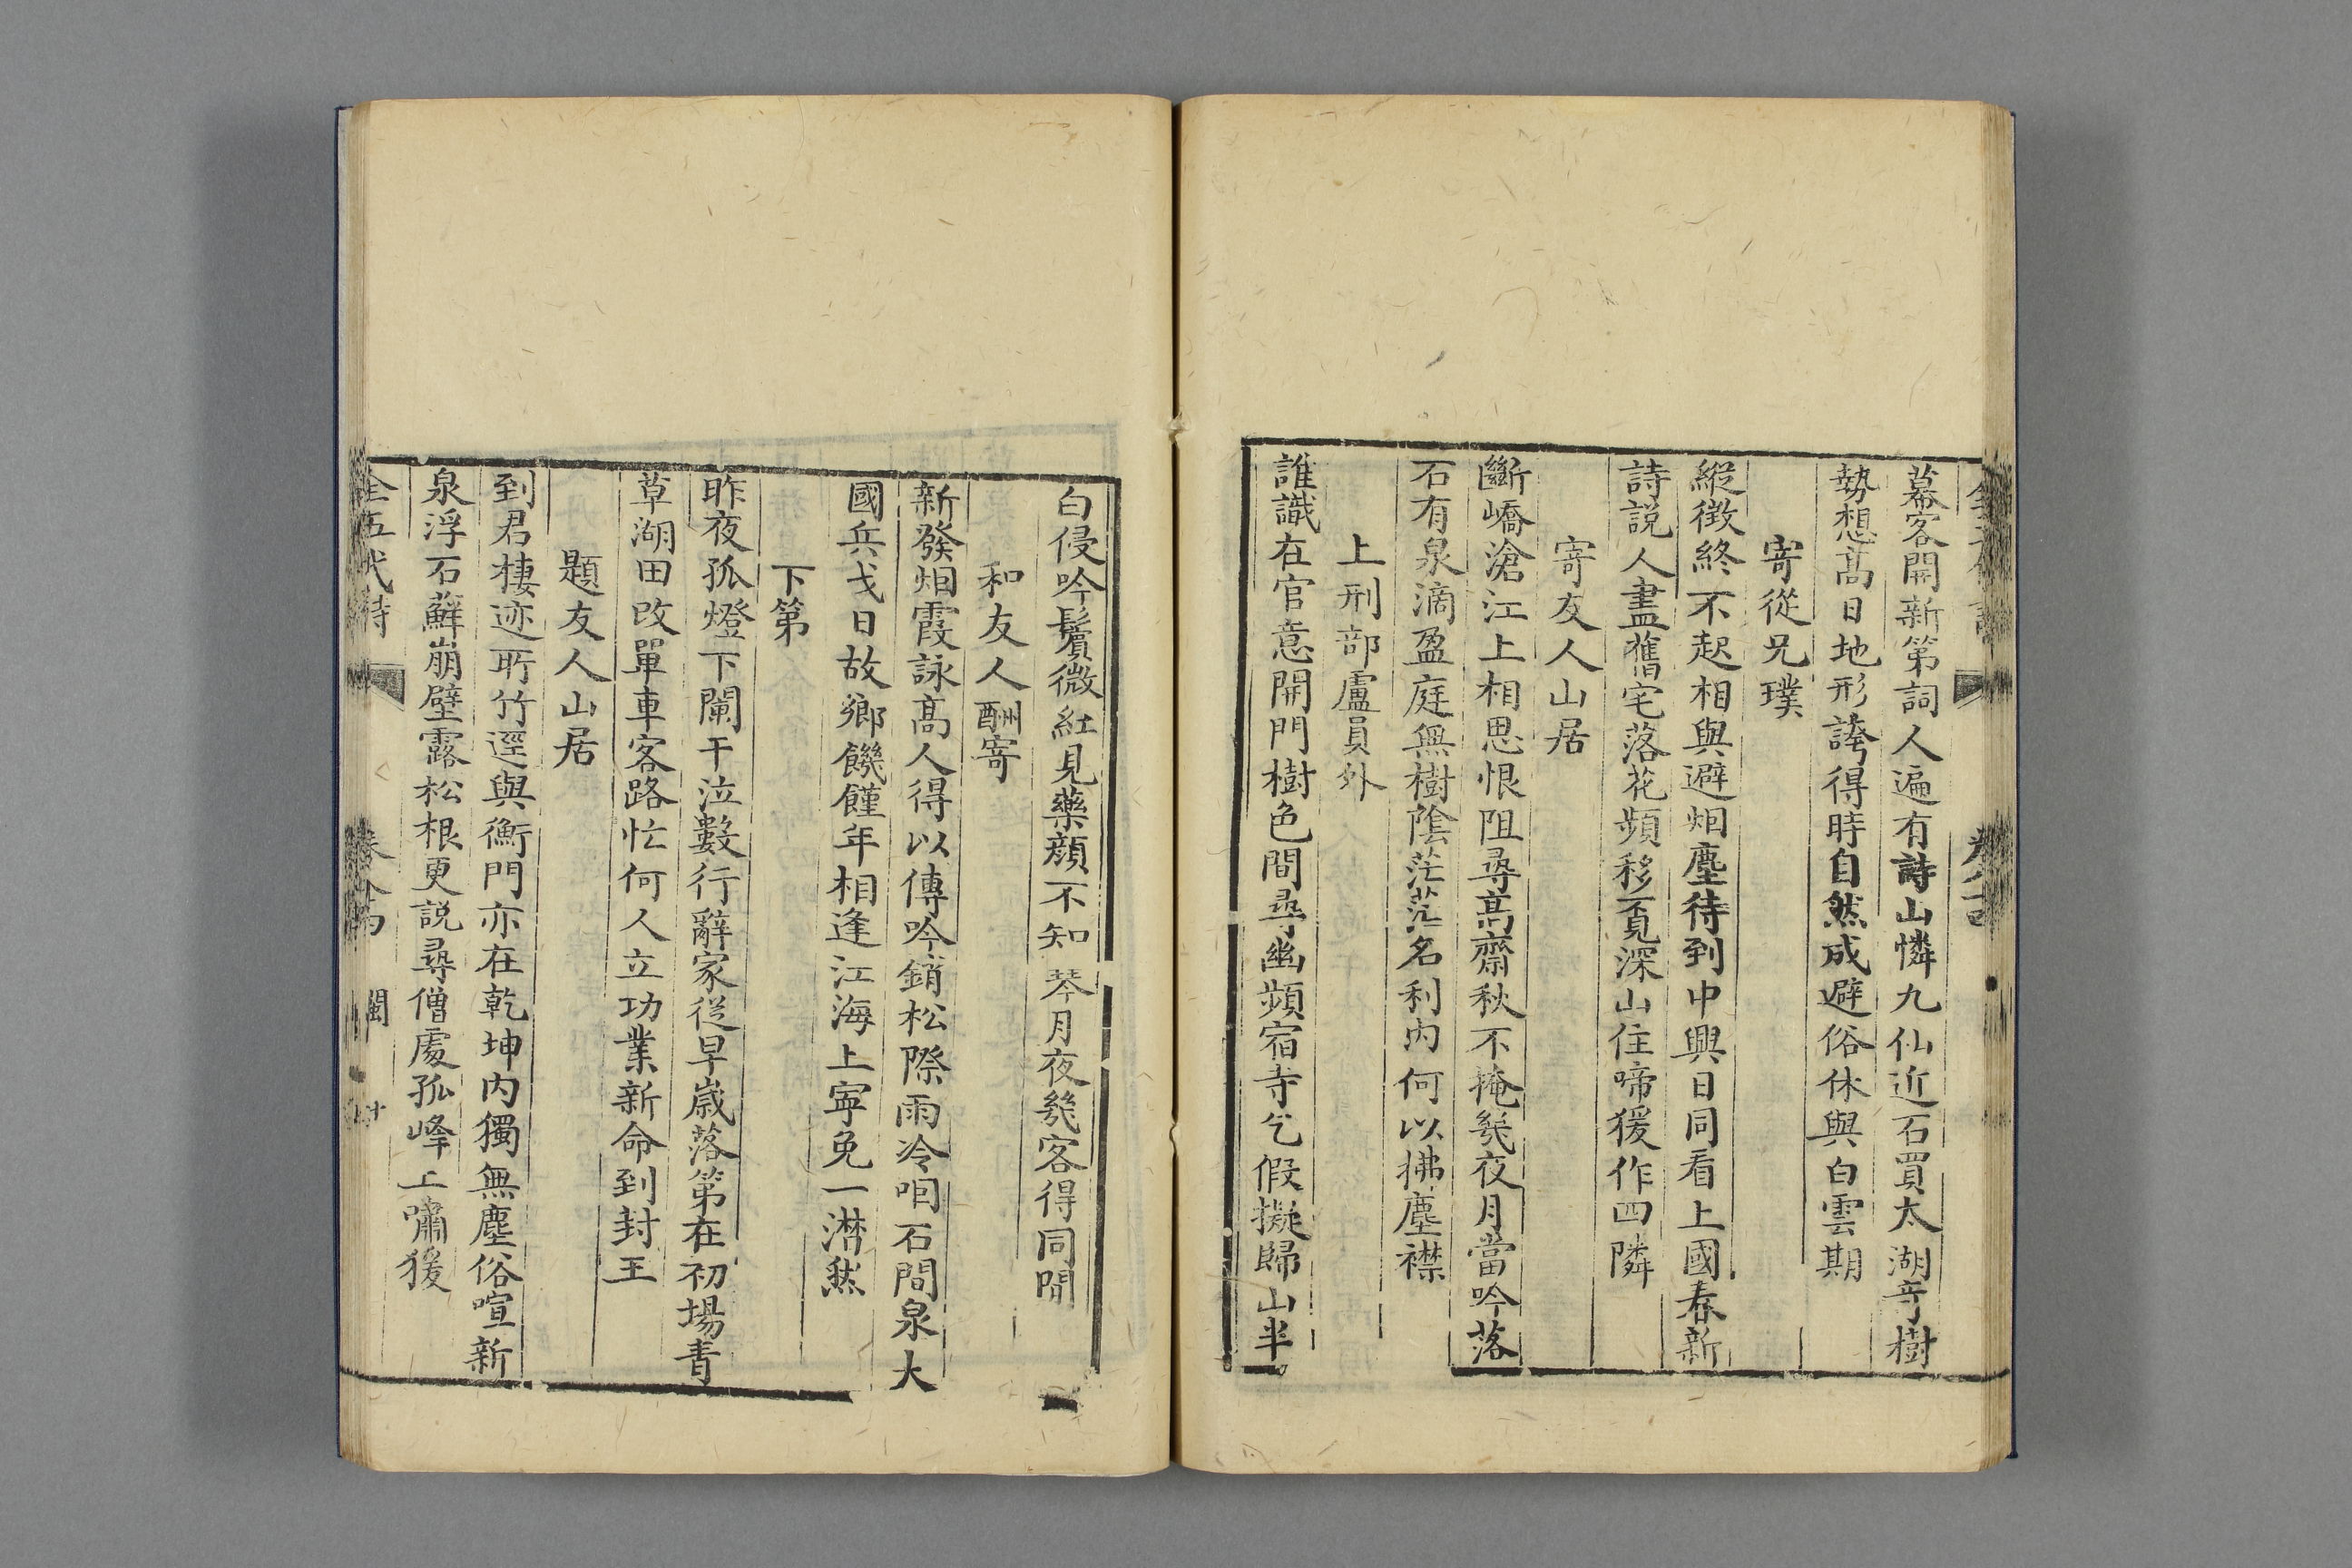 幕客開新第詞人遍有詩山憐九仙近石買太湖竒樹
勢想髙日地形誇得時自然成避俗休與白雲期
寄從兄璞
縱徴終不起相與避烟塵待到中興日同看上國春新
詩説人盡舊宅落花頻移覔深山住啼猨作四隣
寄友人山居
斷嶠滄江上相思恨阻尋髙齋秋不掩幾夜月當吟落
石有泉滴盈庭無樹陰茫茫名利内何以拂塵襟
上刑部盧員外
誰識在官意開門樹色間尋幽頻宿寺乞假擬歸山半
白侵吟鬢微紅見藥顔不知琴月夜幾客得同閒
和友人酬寄
新發烟霞詠髙人得以傳吟銷松際雨冷咱石間泉大
國兵戈日故鄉饑饉年相逢江海上寧免一潸然
下第
昨夜孤燈下闌干泣數行辭家從早嵗落第在初場青
草湖田改單車客路忙何人立功業新命到封王
題友人山居
到君棲迹所竹逕與衡門亦在乾坤内獨無塵俗喧新
泉浮石蘚崩壁露松根更説尋僧處孤峰上嘯猨
全五代詩 閩